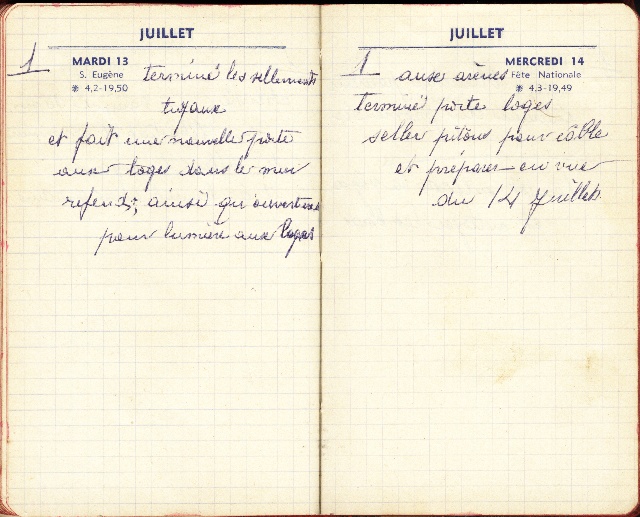 JUILLET
1
MARDI 13
S. Eugène
4,2-19,50
terminé les sellements
tuyaux
et fait une nouvelle porte
aux loges dans le mur
refends, ainsi qu'ouvertures
pour lumière aux loges
JUILLET
1
MERCREDI 14
Fête Nationale
4,3-19,49
aux arènes
terminé porte loges
seller pitons pour câble
et préparer en vue
du 14 Juillet.